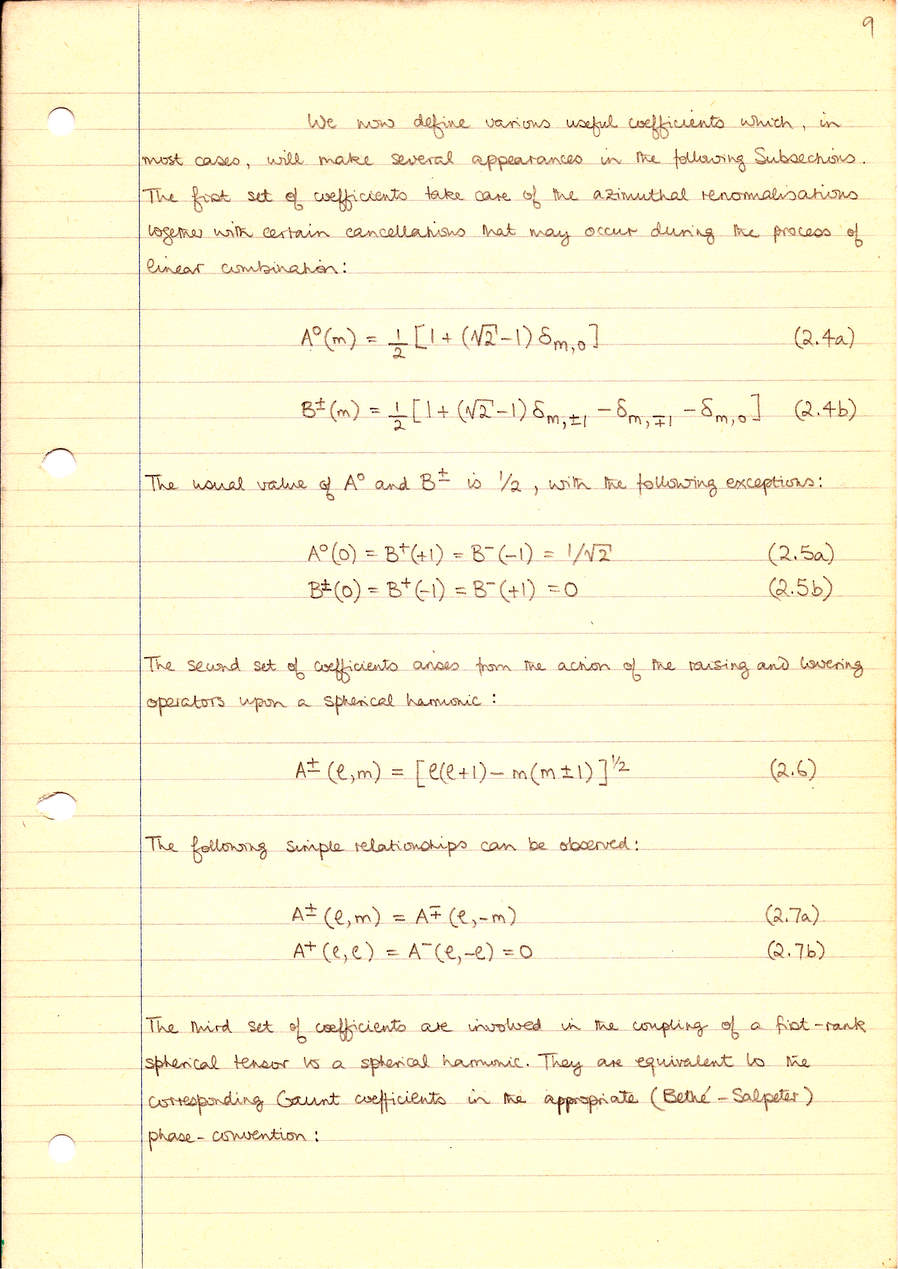 9
We now define various useful coefficients which, in
most cases, will make several appearances in the following Subsections.
The first set of coefficients take care of the azimuthal renormalisations
together with certain cancellations that may occur during the process of
linear combination:
A⁰(m) = 1/2 [1 + (√2 - 1) δm,0] (2.4a)
B±(m) = 1/2 [1 + (√2 - 1) δm,±1 - δm,∓1 - δm,0] (2.4b)
The usual value of A⁰ and B± is 1/2, with the following exceptions:
A⁰(0) = B⁺(+1) = B⁻(-1) = 1/√2 (2.5a)
B±(0) = B⁺(-1) = B⁻(+1) = 0 (2.5b)
The second set of coefficients arises from the action of the raising and lowering
operators upon a spherical harmonic:
A±(ℓ,m) = [ℓ(ℓ+1) - m(m±1)]^1/2 (2.6)
The following simple relationships can be observed:
A±(ℓ,m) = A∓(ℓ,-m) (2.7a)
A⁺(ℓ,ℓ) = A⁻(ℓ,-ℓ) = 0 (2.7b)
The third set of coefficients are involved in the coupling of a first-rank
spherical tensor to a spherical harmonic. They are equivalent to the
corresponding Gaunt coefficients in the appropriate (Bethé - Salpeter)
phase-convention: